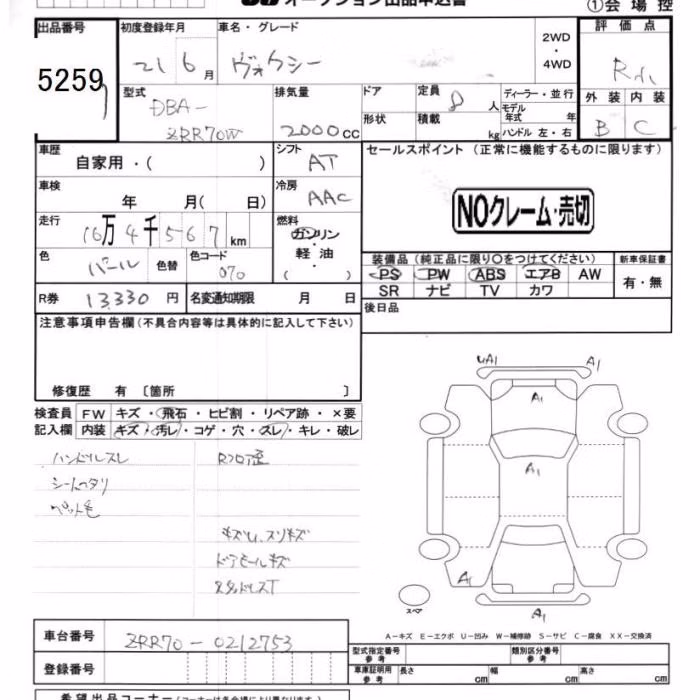 オークション出品申込書 ①会場控
出品番号 初度登録年月 車名・グレード 2WD・4WD 評価点
5259 21 6月 ヴォクシー
型式 排気量 ドア 定員 8人 ディーラー・並行 外装 内装
DBA-ZRR70W 2000cc 形状 積載 kg モデル年式 年 B C
ハンドル 左・右
車歴 自家用・( ) シフト AT セールスポイント (正常に機能するものに限ります)
車検 年 月( 日) 冷房 AAC NOクレーム・売切
走行 16万4千567km 燃料 ガソリン・軽油・( )
色 パール 色替 色コード 070 装備品 (純正品に限り○をつけてください) 新車保証書
PS PW ABS エアB AW 有・無
R券 13,330円 名変通知期限 月 日 SR ナビ TV カワ
後日品
注意事項申告欄(不具合内容等は具体的に記入して下さい)
修復歴 有 〔箇所 〕
検査員 FW キズ・飛石・ヒビ割・リペア跡・×要
記入欄 内装 キズ・汚レ・コゲ・穴・スレ・キレ・破レ
ハンドルスレ
シートヘタリ
ペット毛
キズU、スリキズ
ドアモールキズ
UA1 A1
A1
A1
A1
A1
スペア
A-キズ E-エクボ U-凹み W-補修跡 S-サビ C-腐食 XX-交換済
車台番号 ZRR70-0212753 型式指定番号 参考 類別区分番号 参考
登録番号 車庫証明用 参考 長さ cm 幅 cm 高さ cm
希望出品コーナー